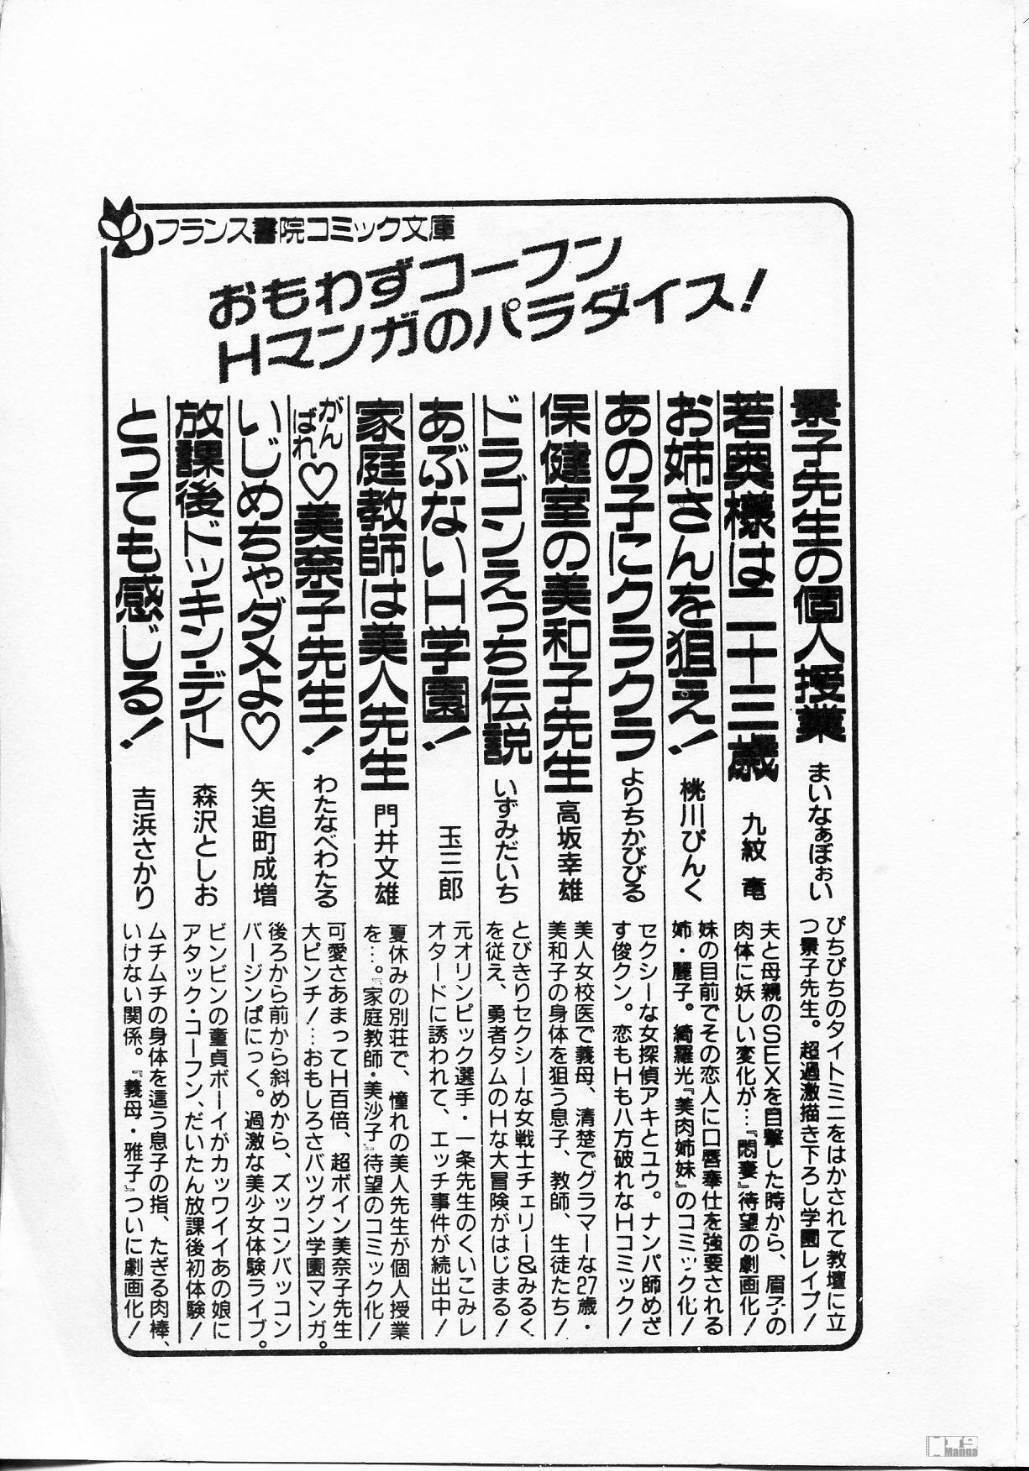 フランス書院コミック文庫
おもわずコーフン
Hマンガのパラダイス!
景子先生の個人授業 まいなぁぼぉい
ぴちぴちのタイトミニをはかされて教壇に立
つ景子先生。超過激描き下ろし学園レイプ!
若奥様は二十三歳 九紋竜
夫と母親のSEXを目撃した時から、眉子の
肉体に妖しい変化が…『悶妻』待望の劇画化!
お姉さんを狙え! 桃川ぴんく
妹の目前でその恋人に口唇奉仕を強要される
姉・麗子。綺羅光『美肉姉妹』のコミック化!
あの子にクラクラ よりちかびびる
セクシーな女探偵アキとユウ。ナンパ師めざ
す俊クン。恋もHも八方破れなHコミック!
保健室の美和子先生 高坂幸雄
美人女校医で義母、清楚でグラマーな27歳・
美和子の身体を狙う息子、教師、生徒たち!
ドラゴンえっち伝説 いずみだいち
とびきりセクシーな女戦士チェリー&みるく
を従え、勇者タムのHな大冒険がはじまる!
あぶないH学園! 玉三郎
元オリンピック選手・一条先生のくいこみレ
オタードに誘われて、エッチ事件が続出中!
家庭教師は美人先生 門井文雄
夏休みの別荘で、憧れの美人先生が個人授業
を…。『家庭教師・美沙子』待望のコミック化!
がんばれ♡美奈子先生! わたなべわたる
可愛さあまってH百倍、超ボイン美奈子先生
大ピンチ!…おもしろさバツグン学園マンガ。
いじめちゃダメよ♡ 矢追町成増
後ろから前から斜めから、ズッコンバッコン
バージンぱにっく。過激な美少女体験ライブ。
放課後ドッキン・デイト 森沢としお
ビンビンの童貞ボーイがカッワイイあの娘に
アタック・コーフン、だいたん放課後初体験!
とっても感じる! 吉浜さかり
ムチムチの身体を這う息子の指、たぎる肉棒、
いけない関係。『義母・雅子』ついに劇画化!
Manga